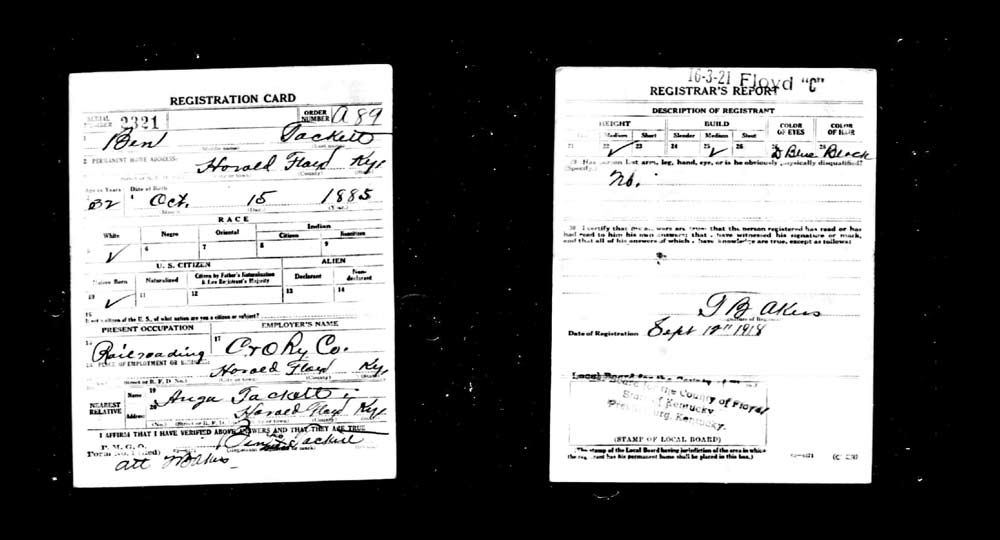 REGISTRATION CARD
SERIAL NUMBER 2321 ORDER NUMBER A 89
1 Ben Tackett
2 PERMANENT HOME ADDRESS:
Harold Floyd Ky.
Age in Years Date of Birth
32 Oct. 15 1885
RACE
White Negro Oriental Indian
Citizen Noncitizen
5 ✓ 6 7 8 9
U. S. CITIZEN ALIEN
Native Born Naturalized Citizen by Father's Naturalization Before Registrant's Majority Declarant Non-declarant
10 ✓ 11 12 13 14
15
If not a citizen of the U. S., of what nation are you a citizen or subject?
PRESENT OCCUPATION EMPLOYER'S NAME
16 Railroading 17 C & O Ry Co.
18 PLACE OF EMPLOYMENT OR BUSINESS:
Harold Floyd Ky.
(Street or R. F. D. No.) (City or town) (County)
NEAREST RELATIVE Name 19 Tackett
Address 20 Harold Floyd Ky.
I AFFIRM THAT I HAVE VERIFIED ABOVE ANSWERS AND THAT THEY ARE TRUE
P. M. G. O.
Form No. 1 (Red) Ben Tackett
att T B Akers
16-3-21 Floyd "C"
REGISTRAR'S REPORT
DESCRIPTION OF REGISTRANT
HEIGHT BUILD COLOR OF EYES COLOR OF HAIR
Medium Short Slender Medium Stout
21 22 ✓ 23 24 25 ✓ 26 27 D Blue 28 Black
29 Has person lost arm, leg, hand, eye, or is he obviously physically disqualified?
(Specify.)
No.
30 I certify that my answers are true; that the person registered has read or has
had read to him his own answers; that I have witnessed his signature or mark,
and that all of his answers of which I have knowledge are true, except as follows:
T B Akers
Date of Registration Sept 12" 1918
Local Board for the County of Floyd
State of Kentucky
Prestonsburg, Kentucky.
(STAMP OF LOCAL BOARD)
(The stamp of the Local Board having jurisdiction of the area in which
the registrant has his permanent home shall be placed in this box.)